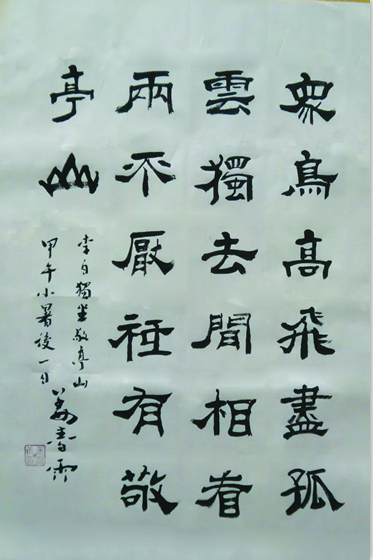 眾鳥高飛盡孤
雲獨去間相看
兩不厭秪有敬
亭山
李白獨坐敬亭山
甲午小暑後一日